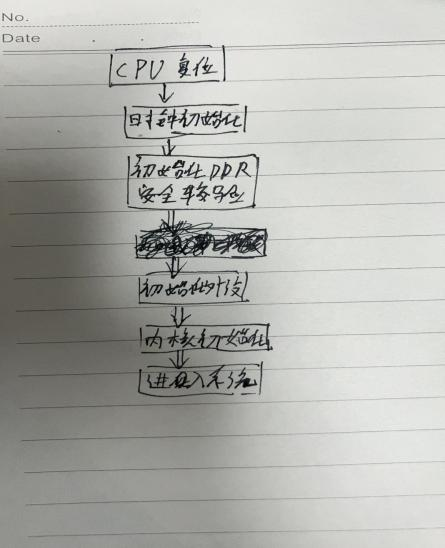 No.
Date
CPU 复位
时钟初始化
初始化DDR
安全
初始化外设
内核初始化
进入系统